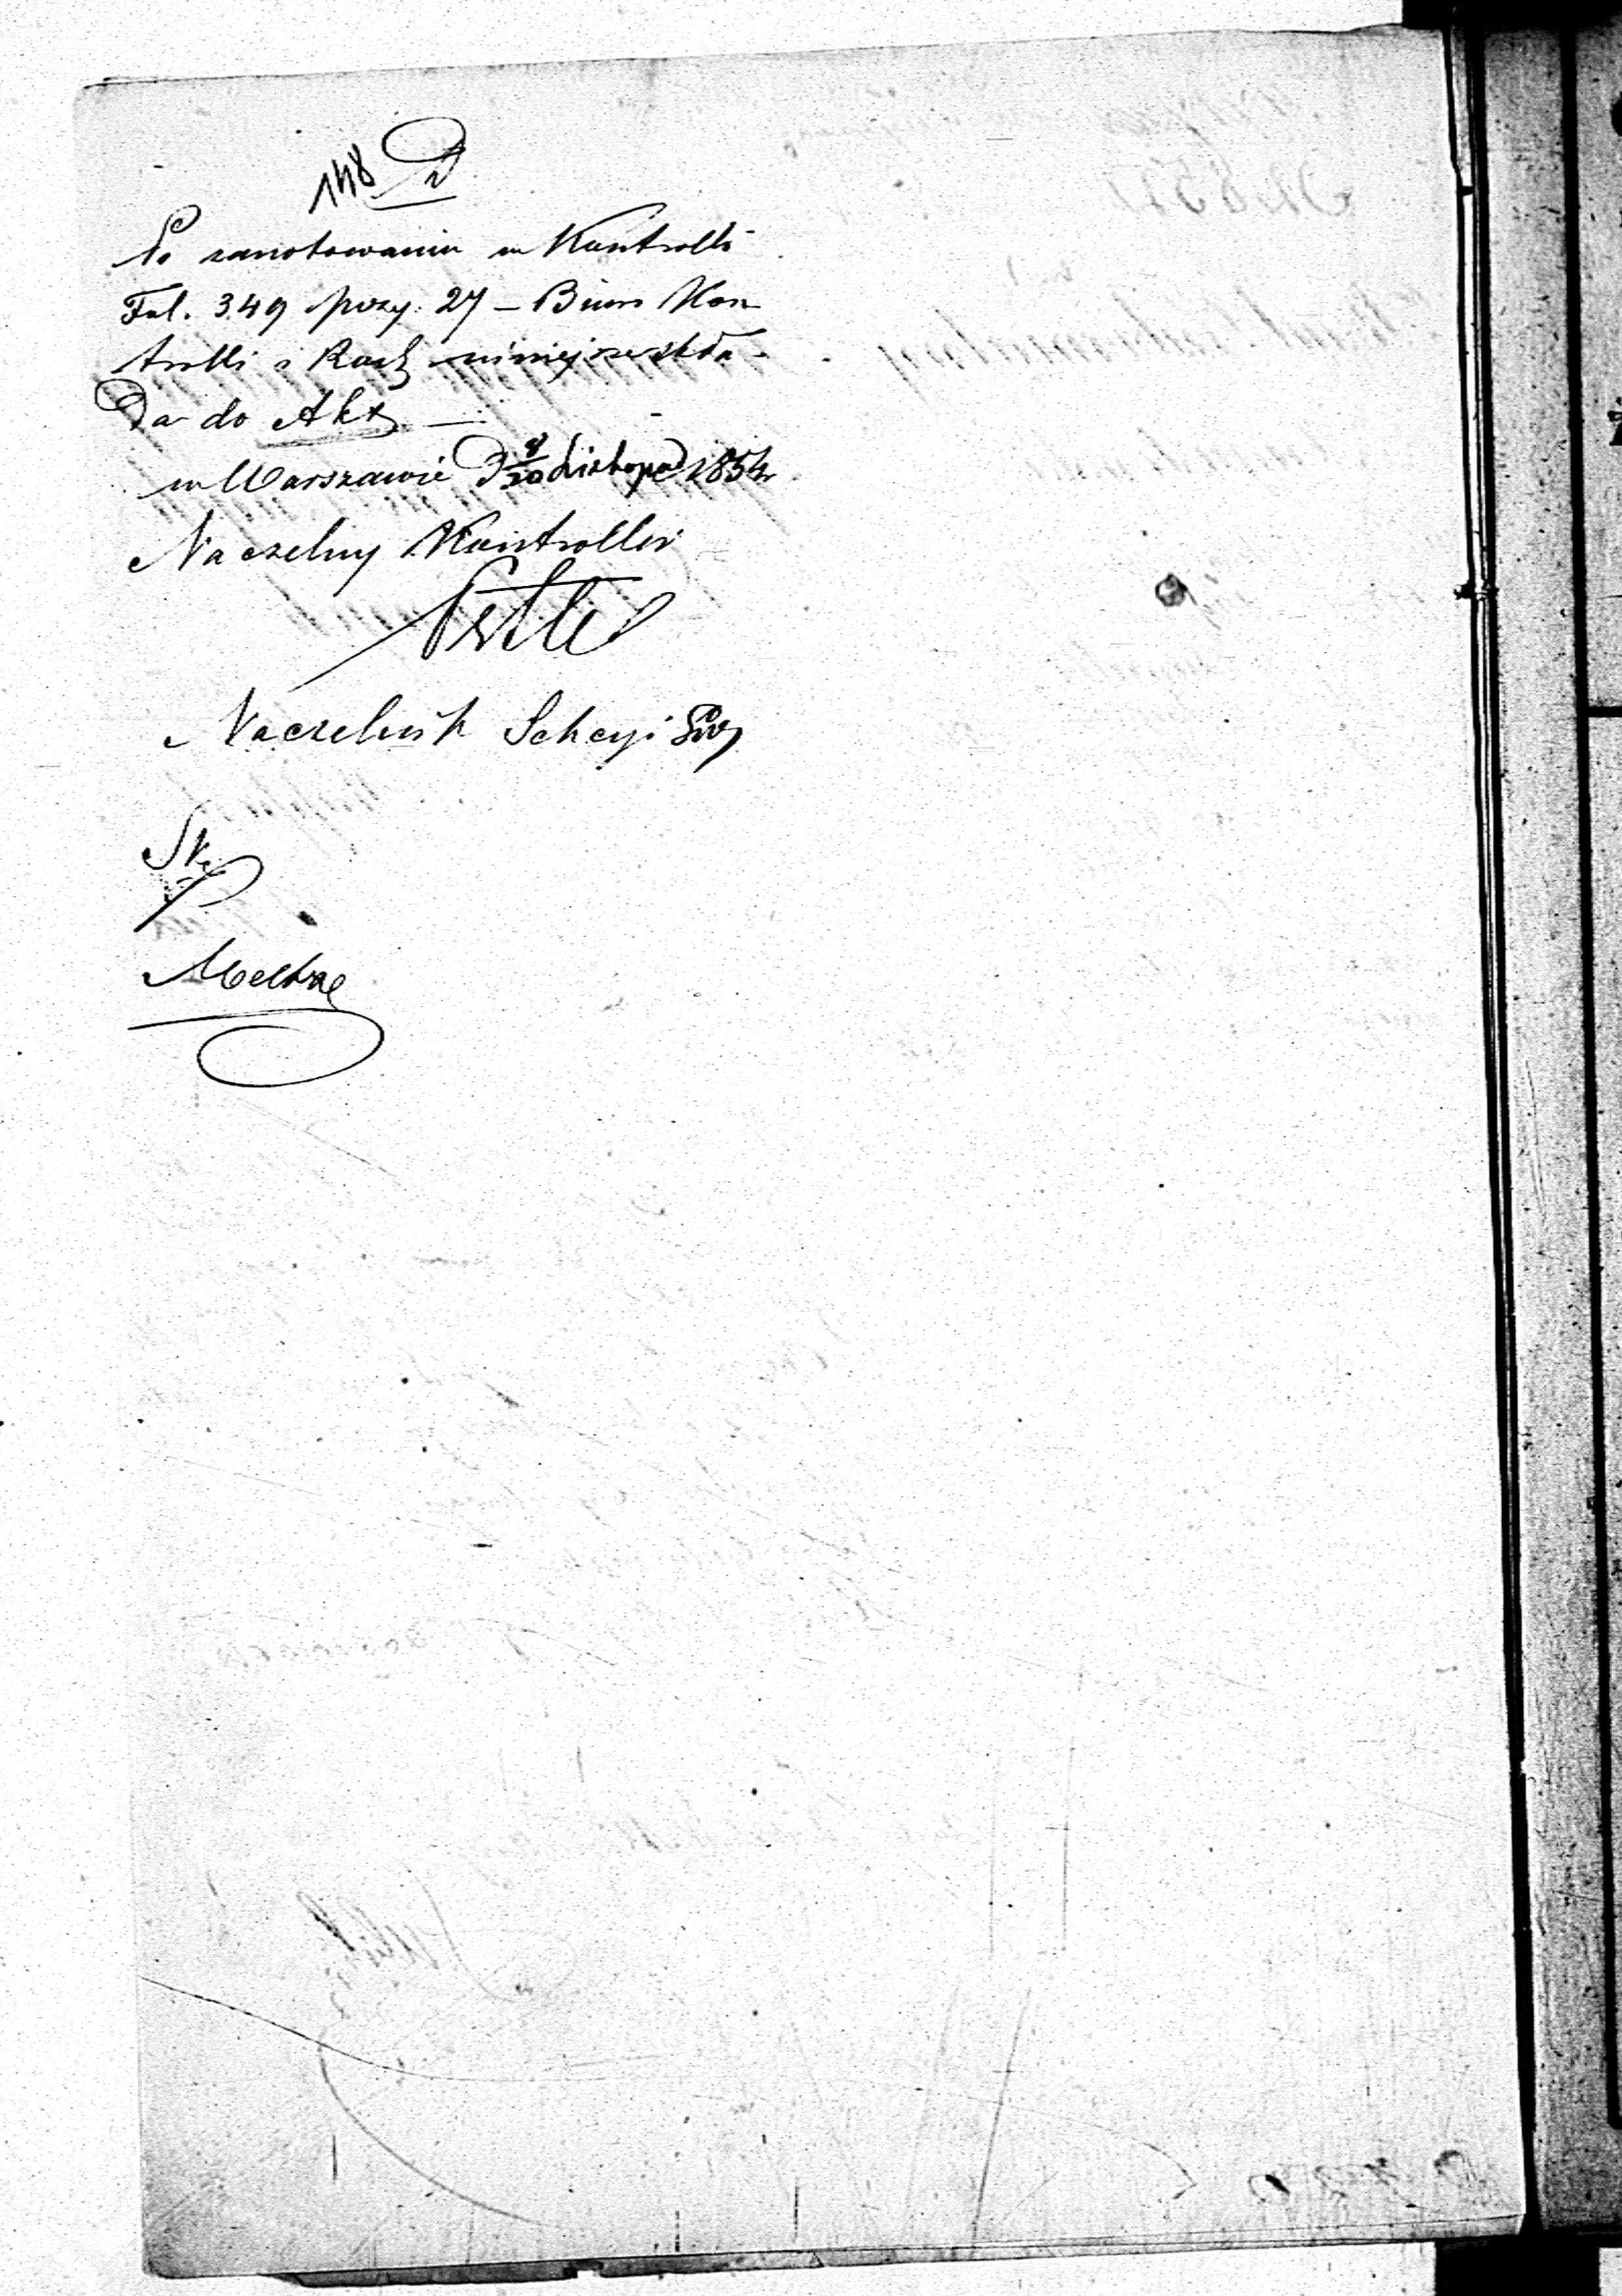 148
Po zanotowaniu w Kontrolli
Fol. 349 pozy. 27 – Biuro Kon
trolli i Rach niniejsze skła-
da do Akt —
w Warszawie D 8/20 Listopad 1854
Naczelny Kontroller
Naczelnik Sekcyi